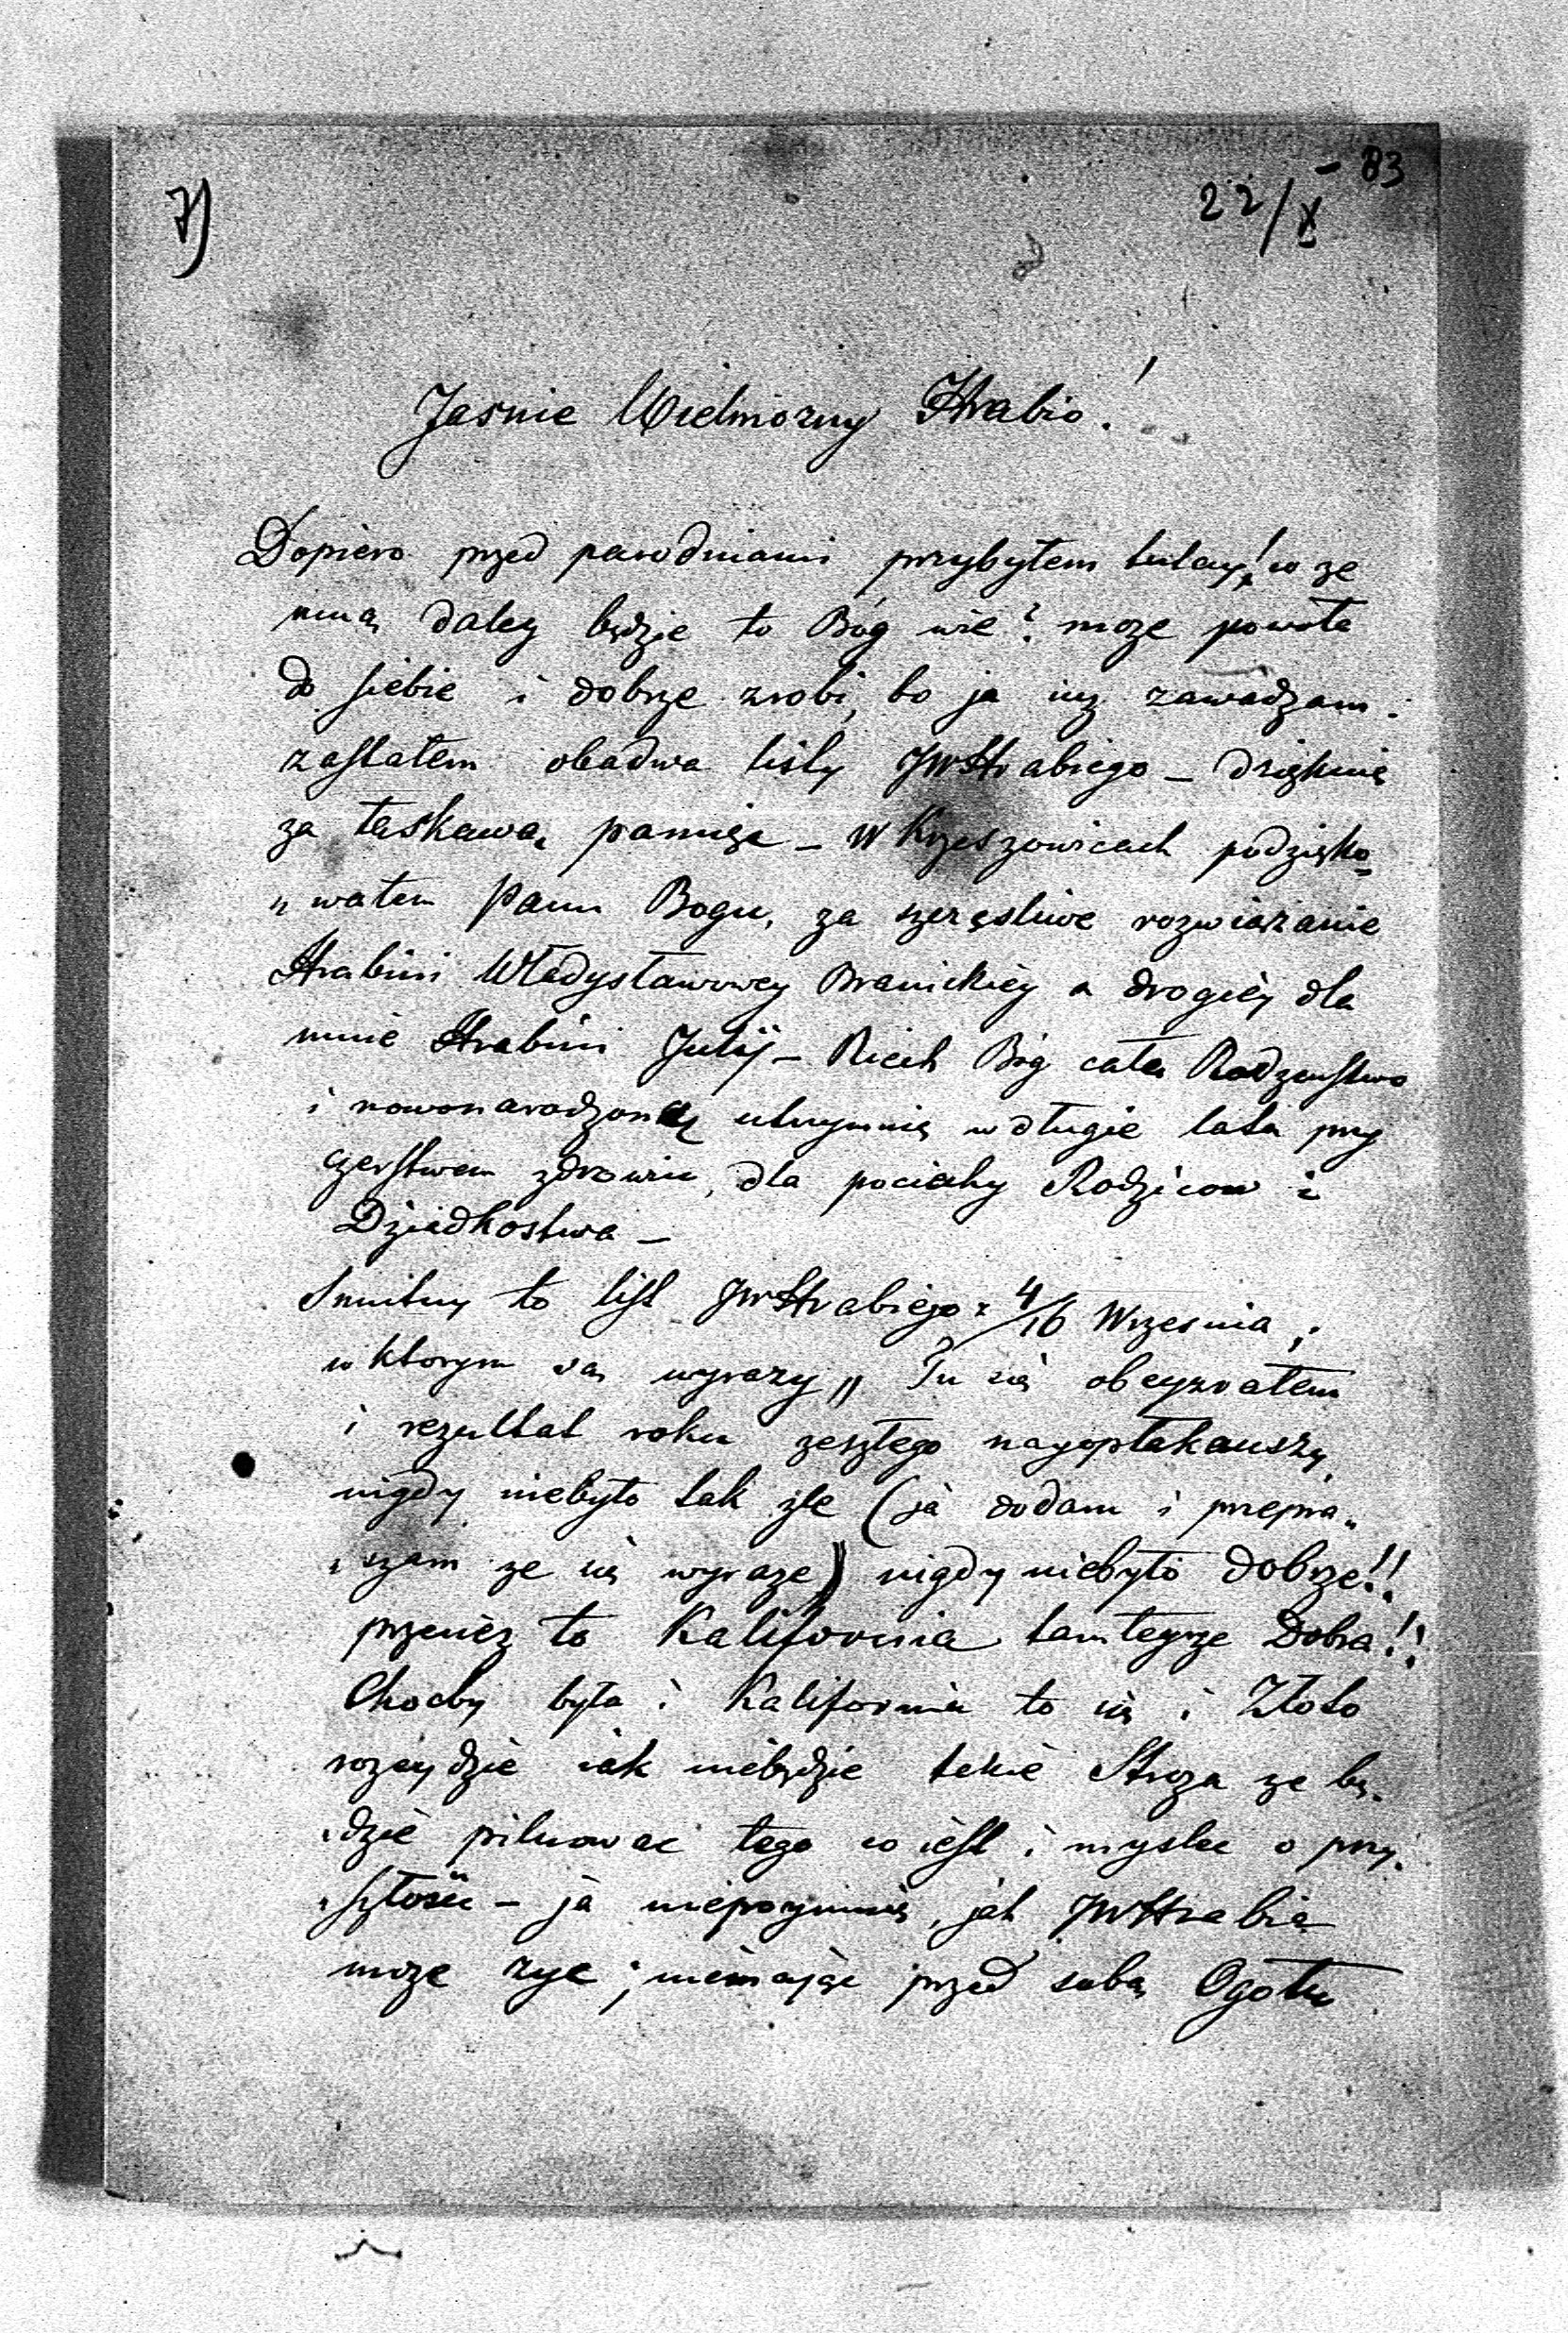 7)
83
22/X
Jasnie Wielmozny Hrabio!
Dopiero przed parodniami przybyłem tutay! co ze
mną daley będzie to Bóg wie? moze powoła
do siebie i dobrze zrobi, bo ja iuz zawadzam.
zastałem obadwa listy JWHrabiego – dziękuię
za łaskawą pamięć – w Krzeszowicach podzięko-
„wałem Panu Bogu, za szczęsliwe rozwiązanie
Hrabini Władysławowey Branickiéy a drogiéy dla
mnie Hrabini Julij – Niech Bóg całe Rodzenstwo
i nowonarodzoną utrzymuie w długie lata przy
czerstwem zdrowiu, dla pociechy Rodzicow i
Dziadkostwa –
Smutny to list JWHrabiego z 4/16 Wrzesnia,
w ktorym są wyrazy „ Tu się obeyzrałem
i rezultat roku zeszłego nayopłakanszy
nigdy niebyło tak zle (ja dodam i przepra„
„szam ze się wyraze) nigdy niebyło dobrze!!
przeciez to Kalifornia tamteysze Dobra!!
Chocby była i Kalifornia to się i Złoto
rozeydzie iak niebędzie takie Stroza ze bę-
„dzie pilnowac tego co iest i myslec o przy-
„szłosci – ja niepoymuię, jak JWHrabia
moze zyc; niemaiąc przed sobą Ogołu